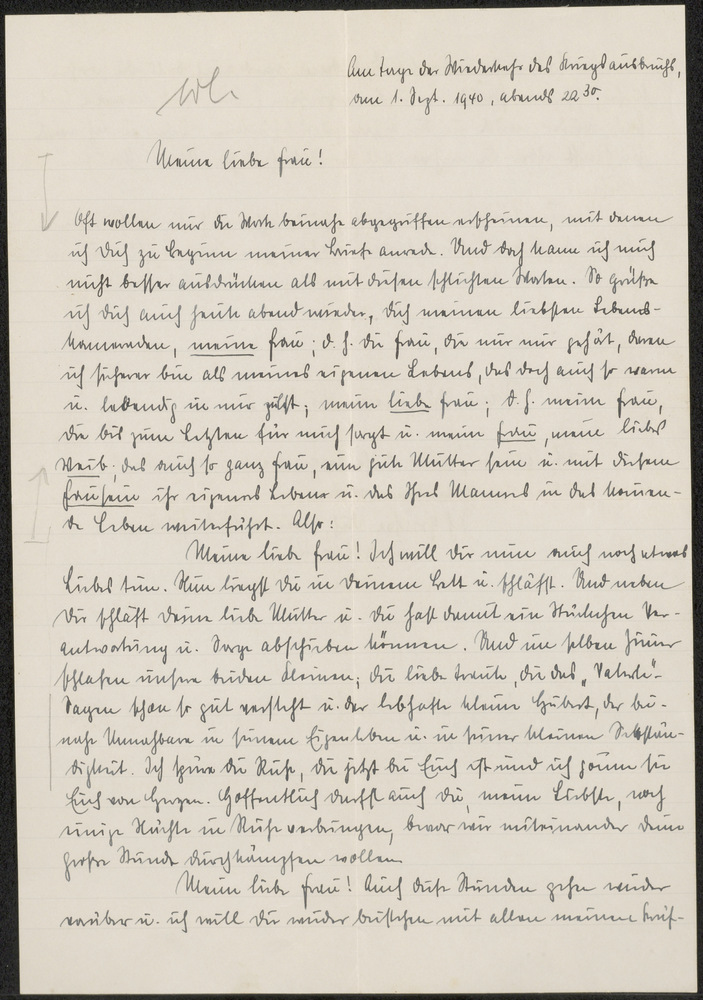 Am Tage der Wiederkehr des Kriegsausbruchs,
am 1. Sept. 1940, abends 22 30.
Meine liebe Frau!
Oft wollen mir die Worte beinahe abgegriffen erscheinen, mit denen
ich Dich zu Beginn meiner Briefe anrede. Und doch kann ich mich
nicht besser ausdrücken als mit diesen schlichten Worten. So grüße
ich Dich auch heute abend wieder, Dich meinen liebsten Lebens-
kameraden, meine Frau; d. h. die Frau, die nur mir gehört, deren
ich sicherer bin als meines eigenen Lebens, das doch auch so warm
u. lebendig in mir pulst; meine liebe Frau; d. h. meine Frau,
die bis zum Letzten für mich sorgt u. meine Frau, mein liebes
Weib; das auch so ganz Frau, eine gute Mutter sein u. mit diesem
Frausein ihr eigenes Leben u. das ihres Mannes in das kommen-
de Leben weiterführt. Also:
Meine liebe Frau! Ich will Dir nun auch noch etwas
Liebes tun. Nun liegst Du in Deinem Bett u. schläfst. Und neben
Dir schläft Deine liebe Mutter u. Du hast damit ein Stückchen Ver-
antwortung u. Sorge abschieben können. Und im selben Zimmer
schlafen unsere beiden Kleinen; die liebe Traute, die das „Vaterle"-
Sagen schon so gut versteht u. der lebhafte kleine Hubert, der bei-
nahe Unnahbare in seinem Eigenleben u. in seiner kleinen Selbstän-
digkeit. Ich spüre die Ruhe, die jetzt bei Euch ist und ich gönne sie
Euch von Herzen. Hoffentlich darfst auch Du, meine Liebste, noch
einige Nächte in Ruhe verbringen, bevor wir miteinander Deine
große Stunde durchkämpfen wollen.
Meine liebe Frau! Auch diese Stunden gehen wieder
vorüber u. ich will Dir wieder beistehen mit allen meinen Kräf-